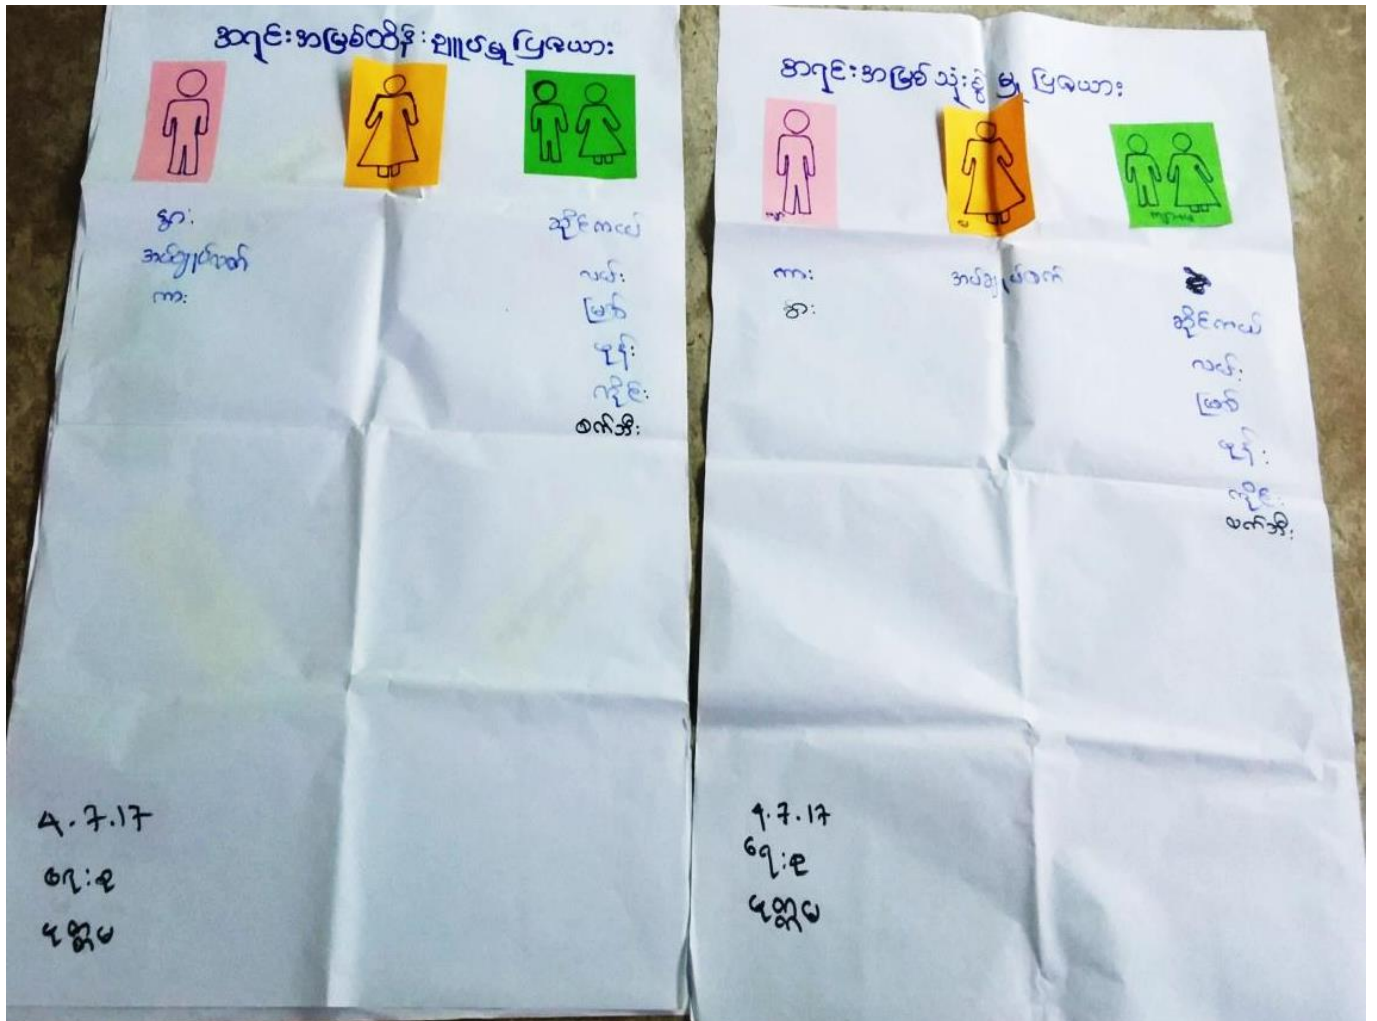 အရင်းအမြစ်ထိန်းချုပ်မှုပြဇယား
နွား
အပ်ချုပ်စက်
ကား
ဆိုင်ကယ်
လယ်
မြစ်
ဖုန်း
ကိုင်း
စက်ဘီး
4.7.17
ရေးစု
မုတ္တမ
အရင်းအမြစ်သုံးစွဲမှုပြဇယား
ကျား
မ
ကျား+မ
ကား
အပ်ချုပ်စက်
နွား
ဆိုင်ကယ်
လယ်
မြစ်
ဖုန်း
ကိုင်း
စက်ဘီး
4.7.17
ရေးစု
မုတ္တမ